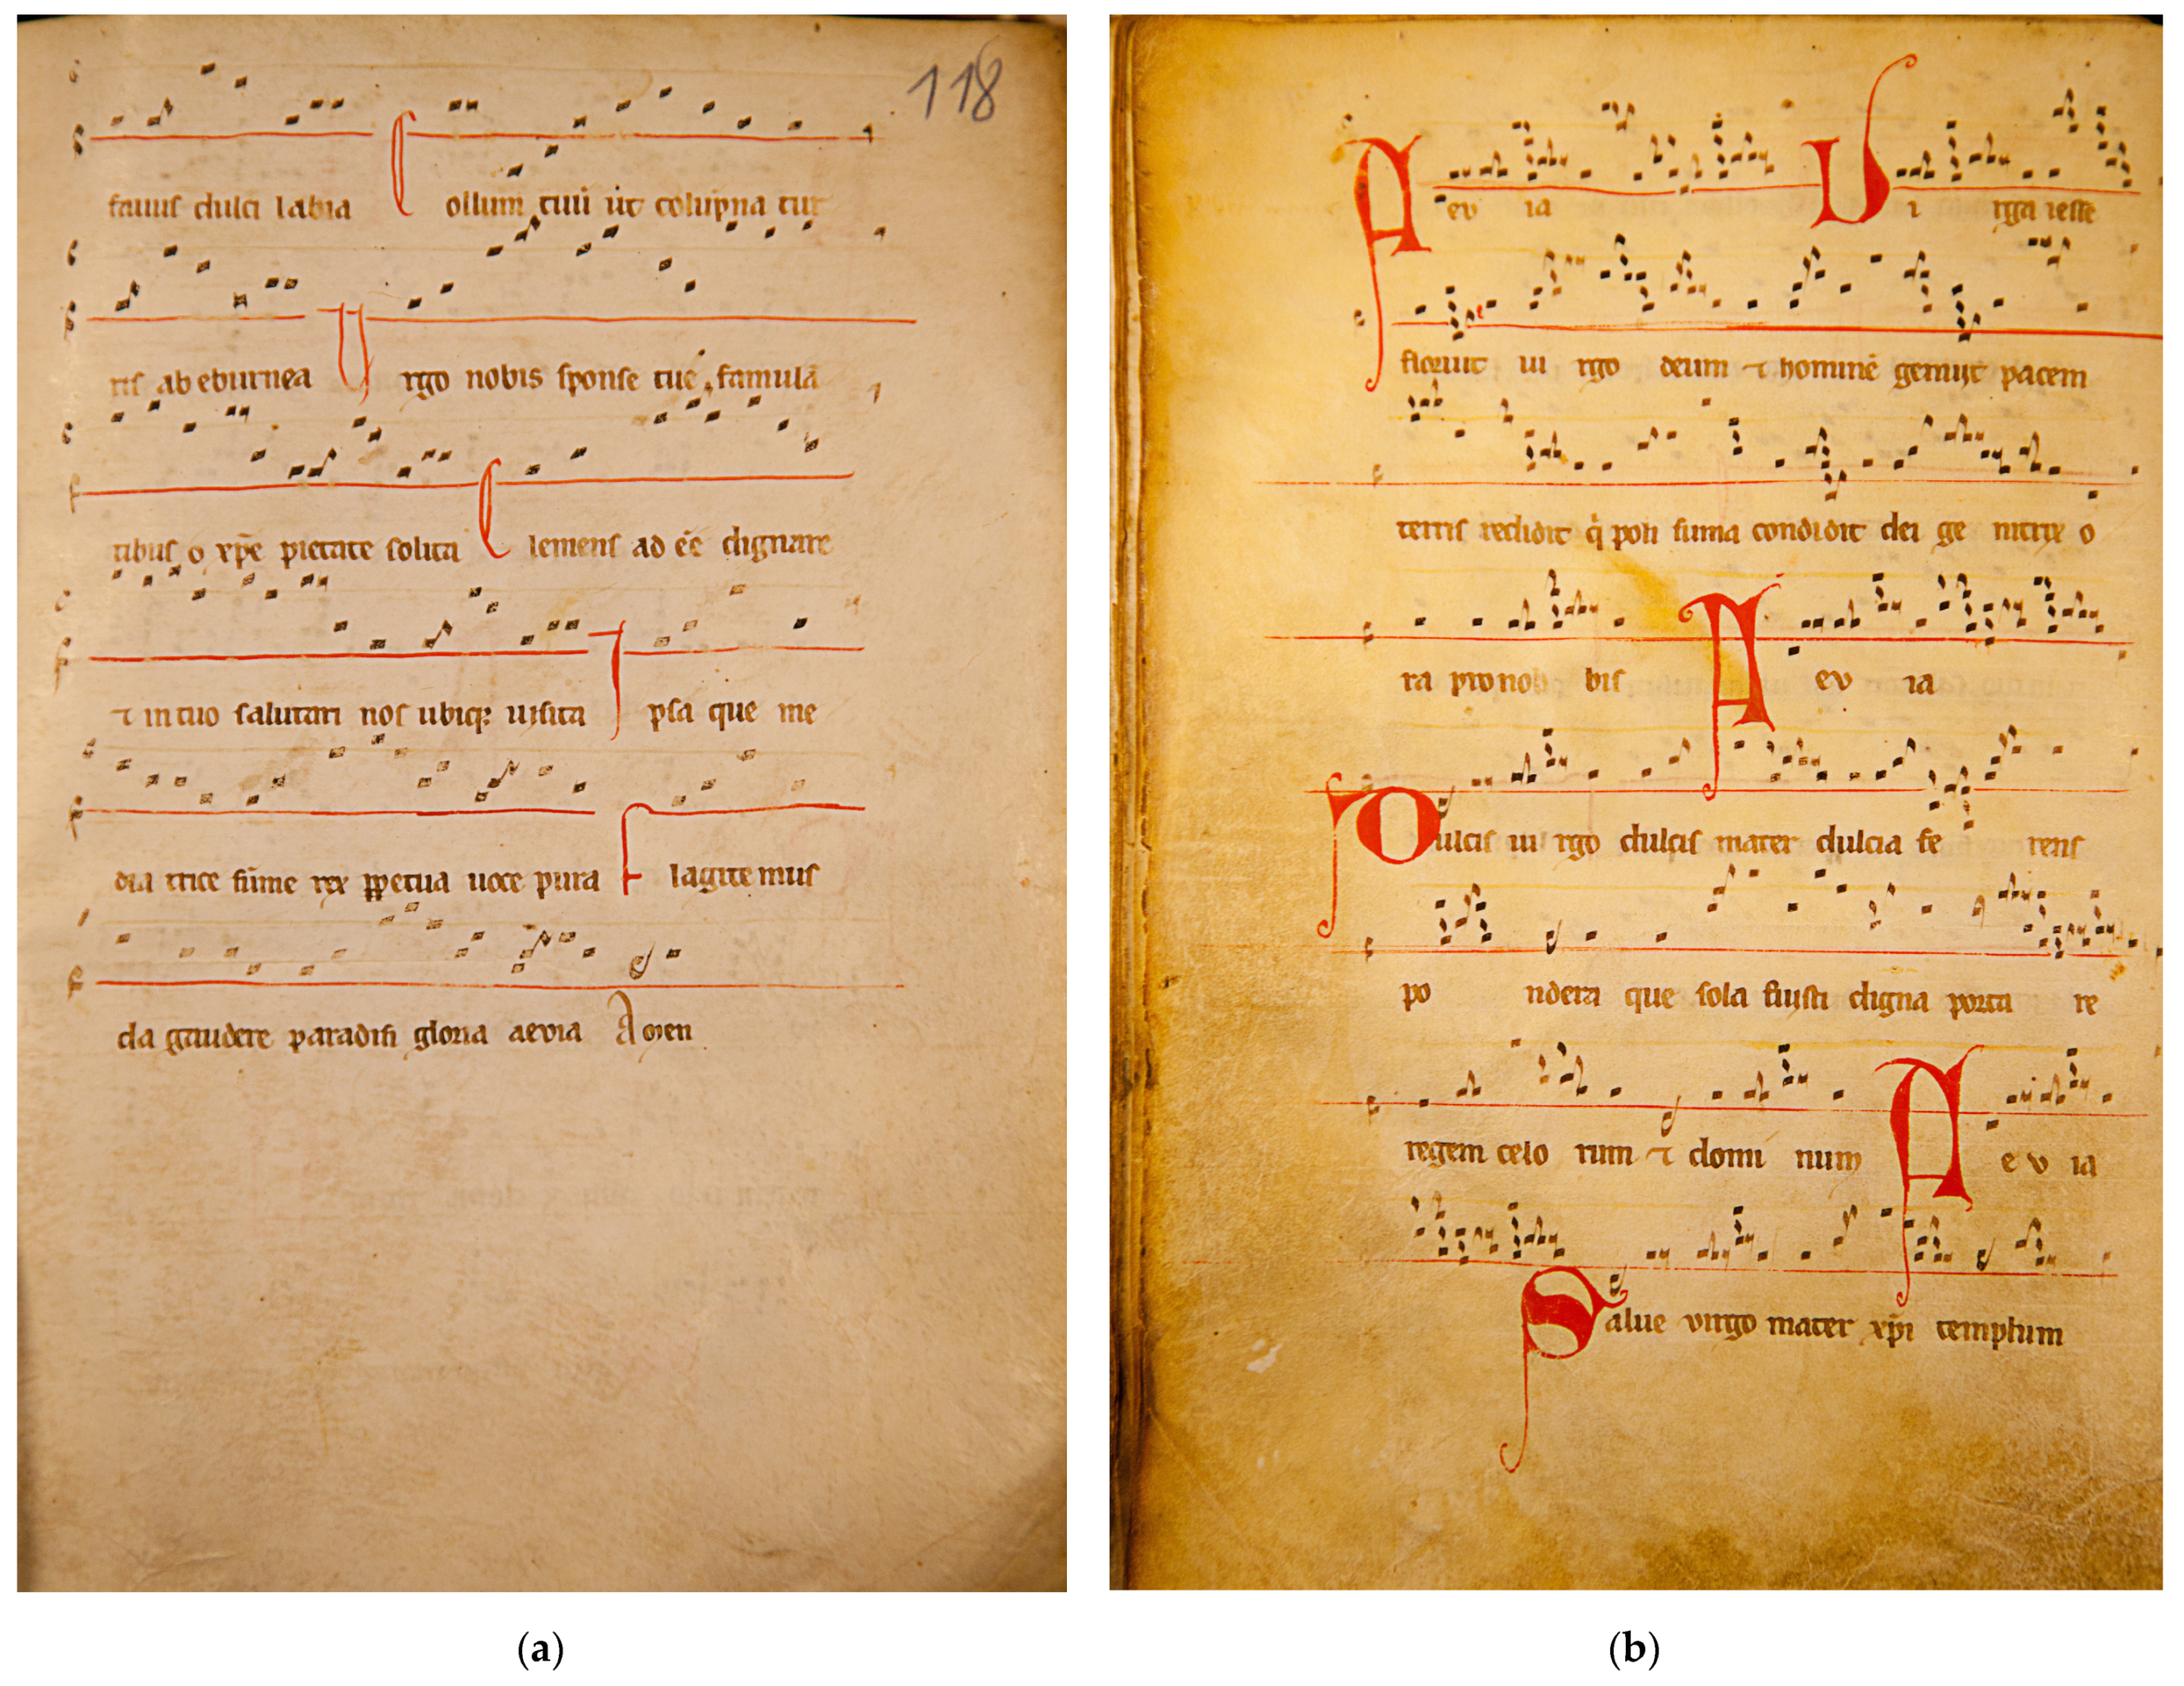 118
fauus dulci labia Collum tuū ut colupna tur
ris ab eburnea Virgo nobis sponse tue famulā
tibus o xp̄e pietate solita Clemens ad eē dignare
⁊ in tuo salutari nos ubiq; uisita Ipsa que me
dia trice sūme rex ꝑpetua uoce pura Flagitemus
da gaudere paradisi gloria aevia Amen
(a)
Aevia Virga iesse
floruit uirgo deum ⁊ hominē genuit pacem
terris reddidit q̇ poli suma condidit dei genitrix o
ra pro nobis Aevia
Dulcis uirgo dulcis mater dulcia ferens
pondera que sola fuisti digna porta re
regem celorum ⁊ dominum Aevia
Salue virgo mater xp̄i templum
(b)